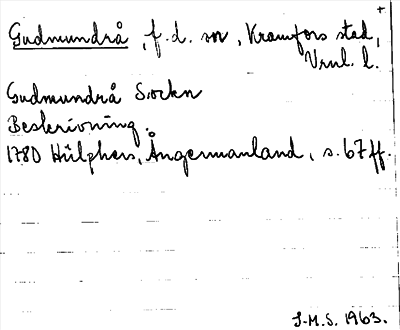 Gudmundrå, f.d. sn, Kramfors stad, +
Vrnl. l.
Gudmundrå Sockn
Beskrivning.
1780 Hülphers, Ångermanland, s. 67 ff.
I.M.S. 1963.